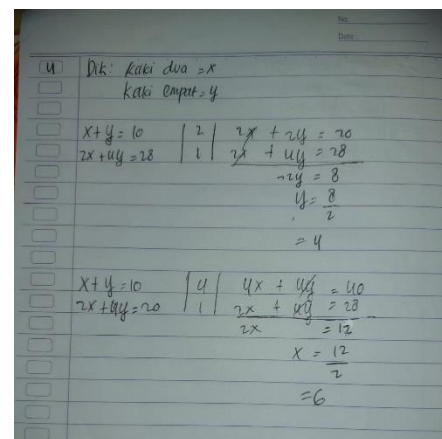 No.
Date:
4 Dik: Kaki dua = x
Kaki empat = y
x + y = 10 | 2 | 2x + 2y = 20
2x + 4y = 28 | 1 | 2x + 4y = 28
-2y = 8
y = 8/2
= 4
x + y = 10 | 4 | 4x + 4y = 40
2x + 4y = 20 | 1 | 2x + 4y = 28
2x = 12
x = 12/2
= 6